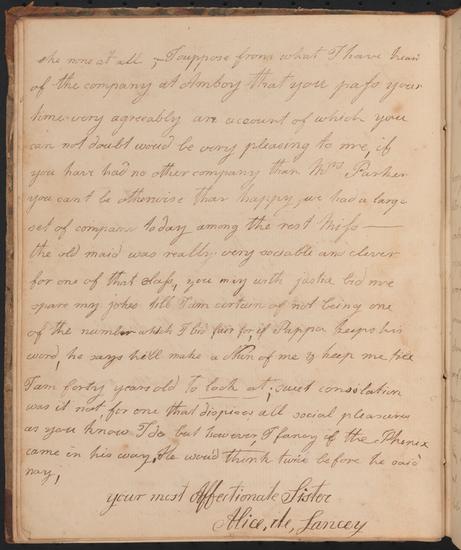 she none at all, I suppose from what I have hear'd
of the company at Amboy that you pass your
time very agreeably an account of which you
can not doubt would be very pleasing to me, if
you have had no other company than Mrs Parker
you cant be otherwise than happy, we had a large
set of company to day among the rest Miss —
the old maid was really very sociable and clever
for one of that class, you may with justice bid me
spare my jokes till I am certain of not being one
of the number which I bid fair for, if Pappa keeps his
word, he says he'll make a Nun of me & keep me till
I am forty years old to look at; sweet consolation
was it not for one that dispises all social pleasures
as you know I do but however I fancy if the Phenix
came in his way, He would think twice before he said
nay,
your most Affectionate Sister
Alice, de, Lancey